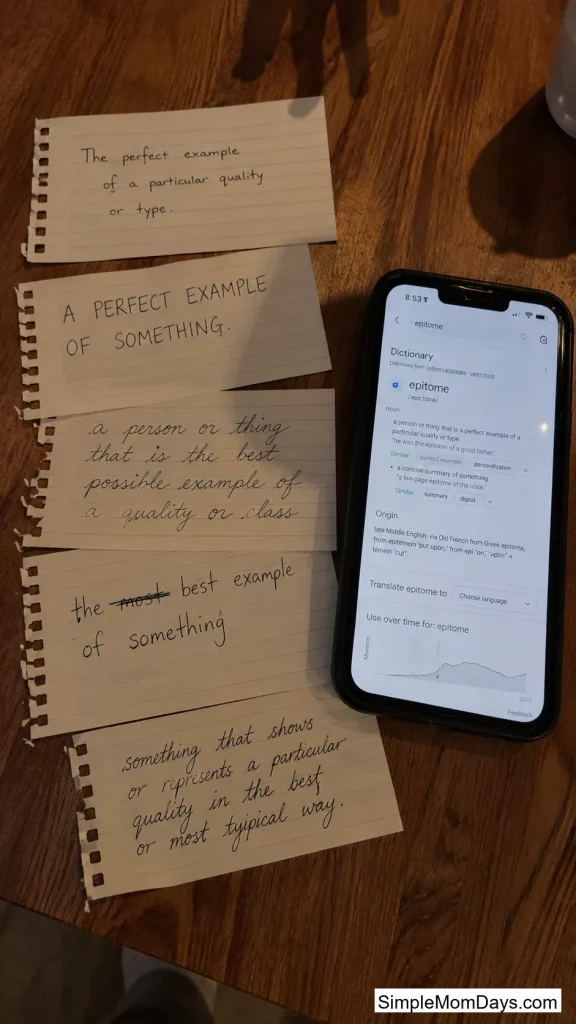 The perfect example
of a particular quality
or type.
A PERFECT EXAMPLE
OF SOMETHING.
a person or thing
that is the best
possible example of
a quality or class
the most best example
of something
something that shows
or represents a particular
quality in the best
or most tyipical way.
8:53
epitome
Dictionary
Definitions from Oxford Languages · Learn more
epitome
noun
a person or thing that is a perfect example of a
particular quality or type.
"he was the epitome of a good father"
Similar: perfect example personification
• a concise summary of something.
"a ten-page epitome of the book"
Similar: summary digest
Origin
late Middle English: via Old French from Greek
from "put upon," from epi "on, upon" +
"cut".
Translate epitome to Choose language
Use over time for: epitome
Mentions
2019
Feedback
SimpleMomDays.com